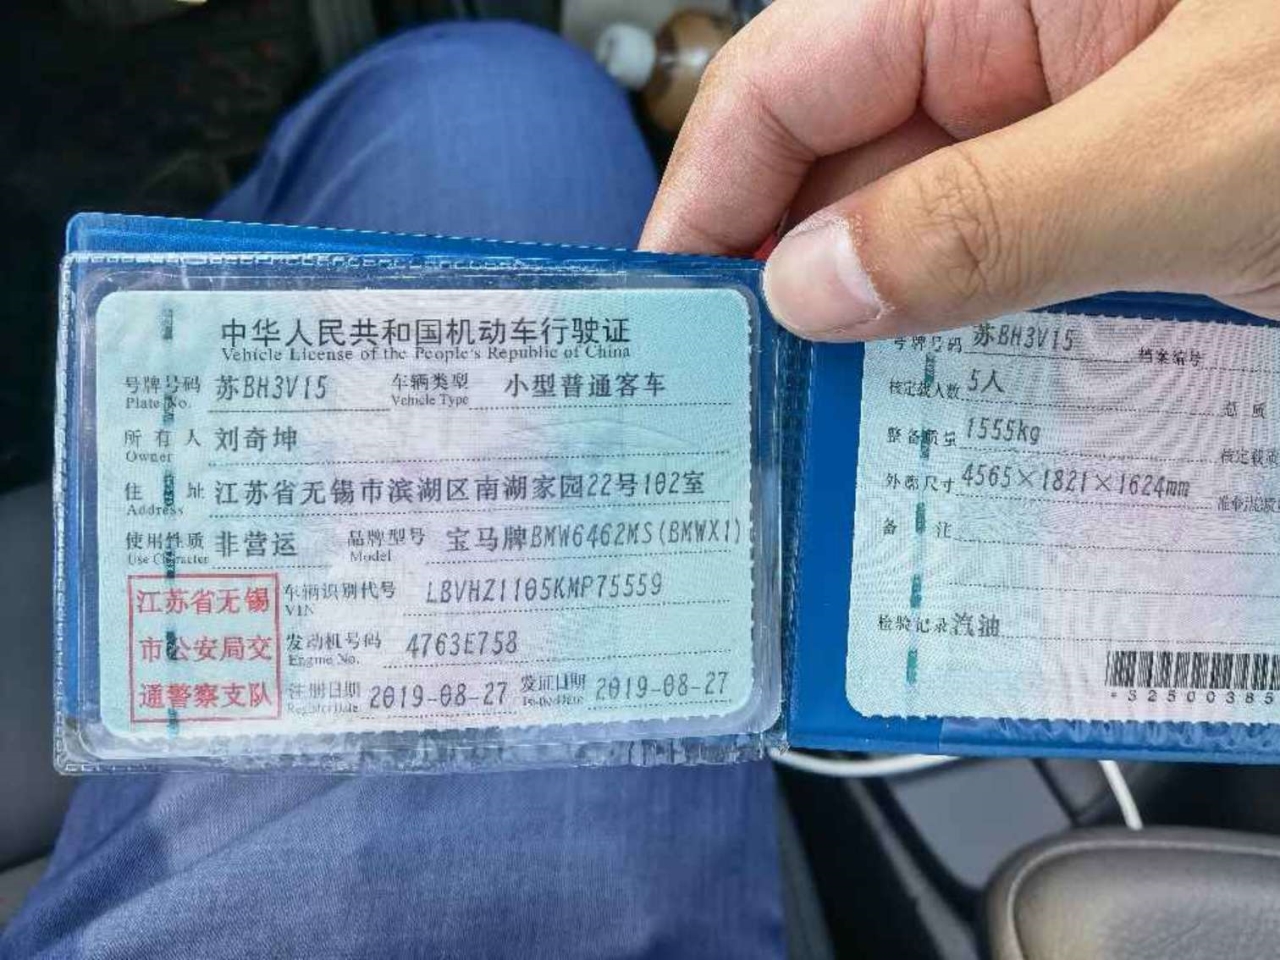 中华人民共和国机动车行驶证
Vehicle License of the People's Republic of China
号牌号码 苏BH3V15 车辆类型 小型普通客车
Plate No. Vehicle Type
所有人 刘奇坤
Owner
住址 江苏省无锡市滨湖区南湖家园22号102室
Address
使用性质 非营运 品牌型号 宝马牌BMW6462MS(BMWX1)
Use Character Model
江苏省无锡
市公安局交
通警察支队
车辆识别代号 LBVHZ1105KMP75559
VIN
发动机号码 4763E758
Engine No.
注册日期 2019-08-27 发证日期 2019-08-27
Register Date Issue Date
号牌号码 苏BH3V15 档案编号
核定载人数 5人 总质
整备质量 1555kg 核定载质
外廓尺寸 4565×1821×1624mm 准牵引总
备注
检验记录 汽油
*32500385